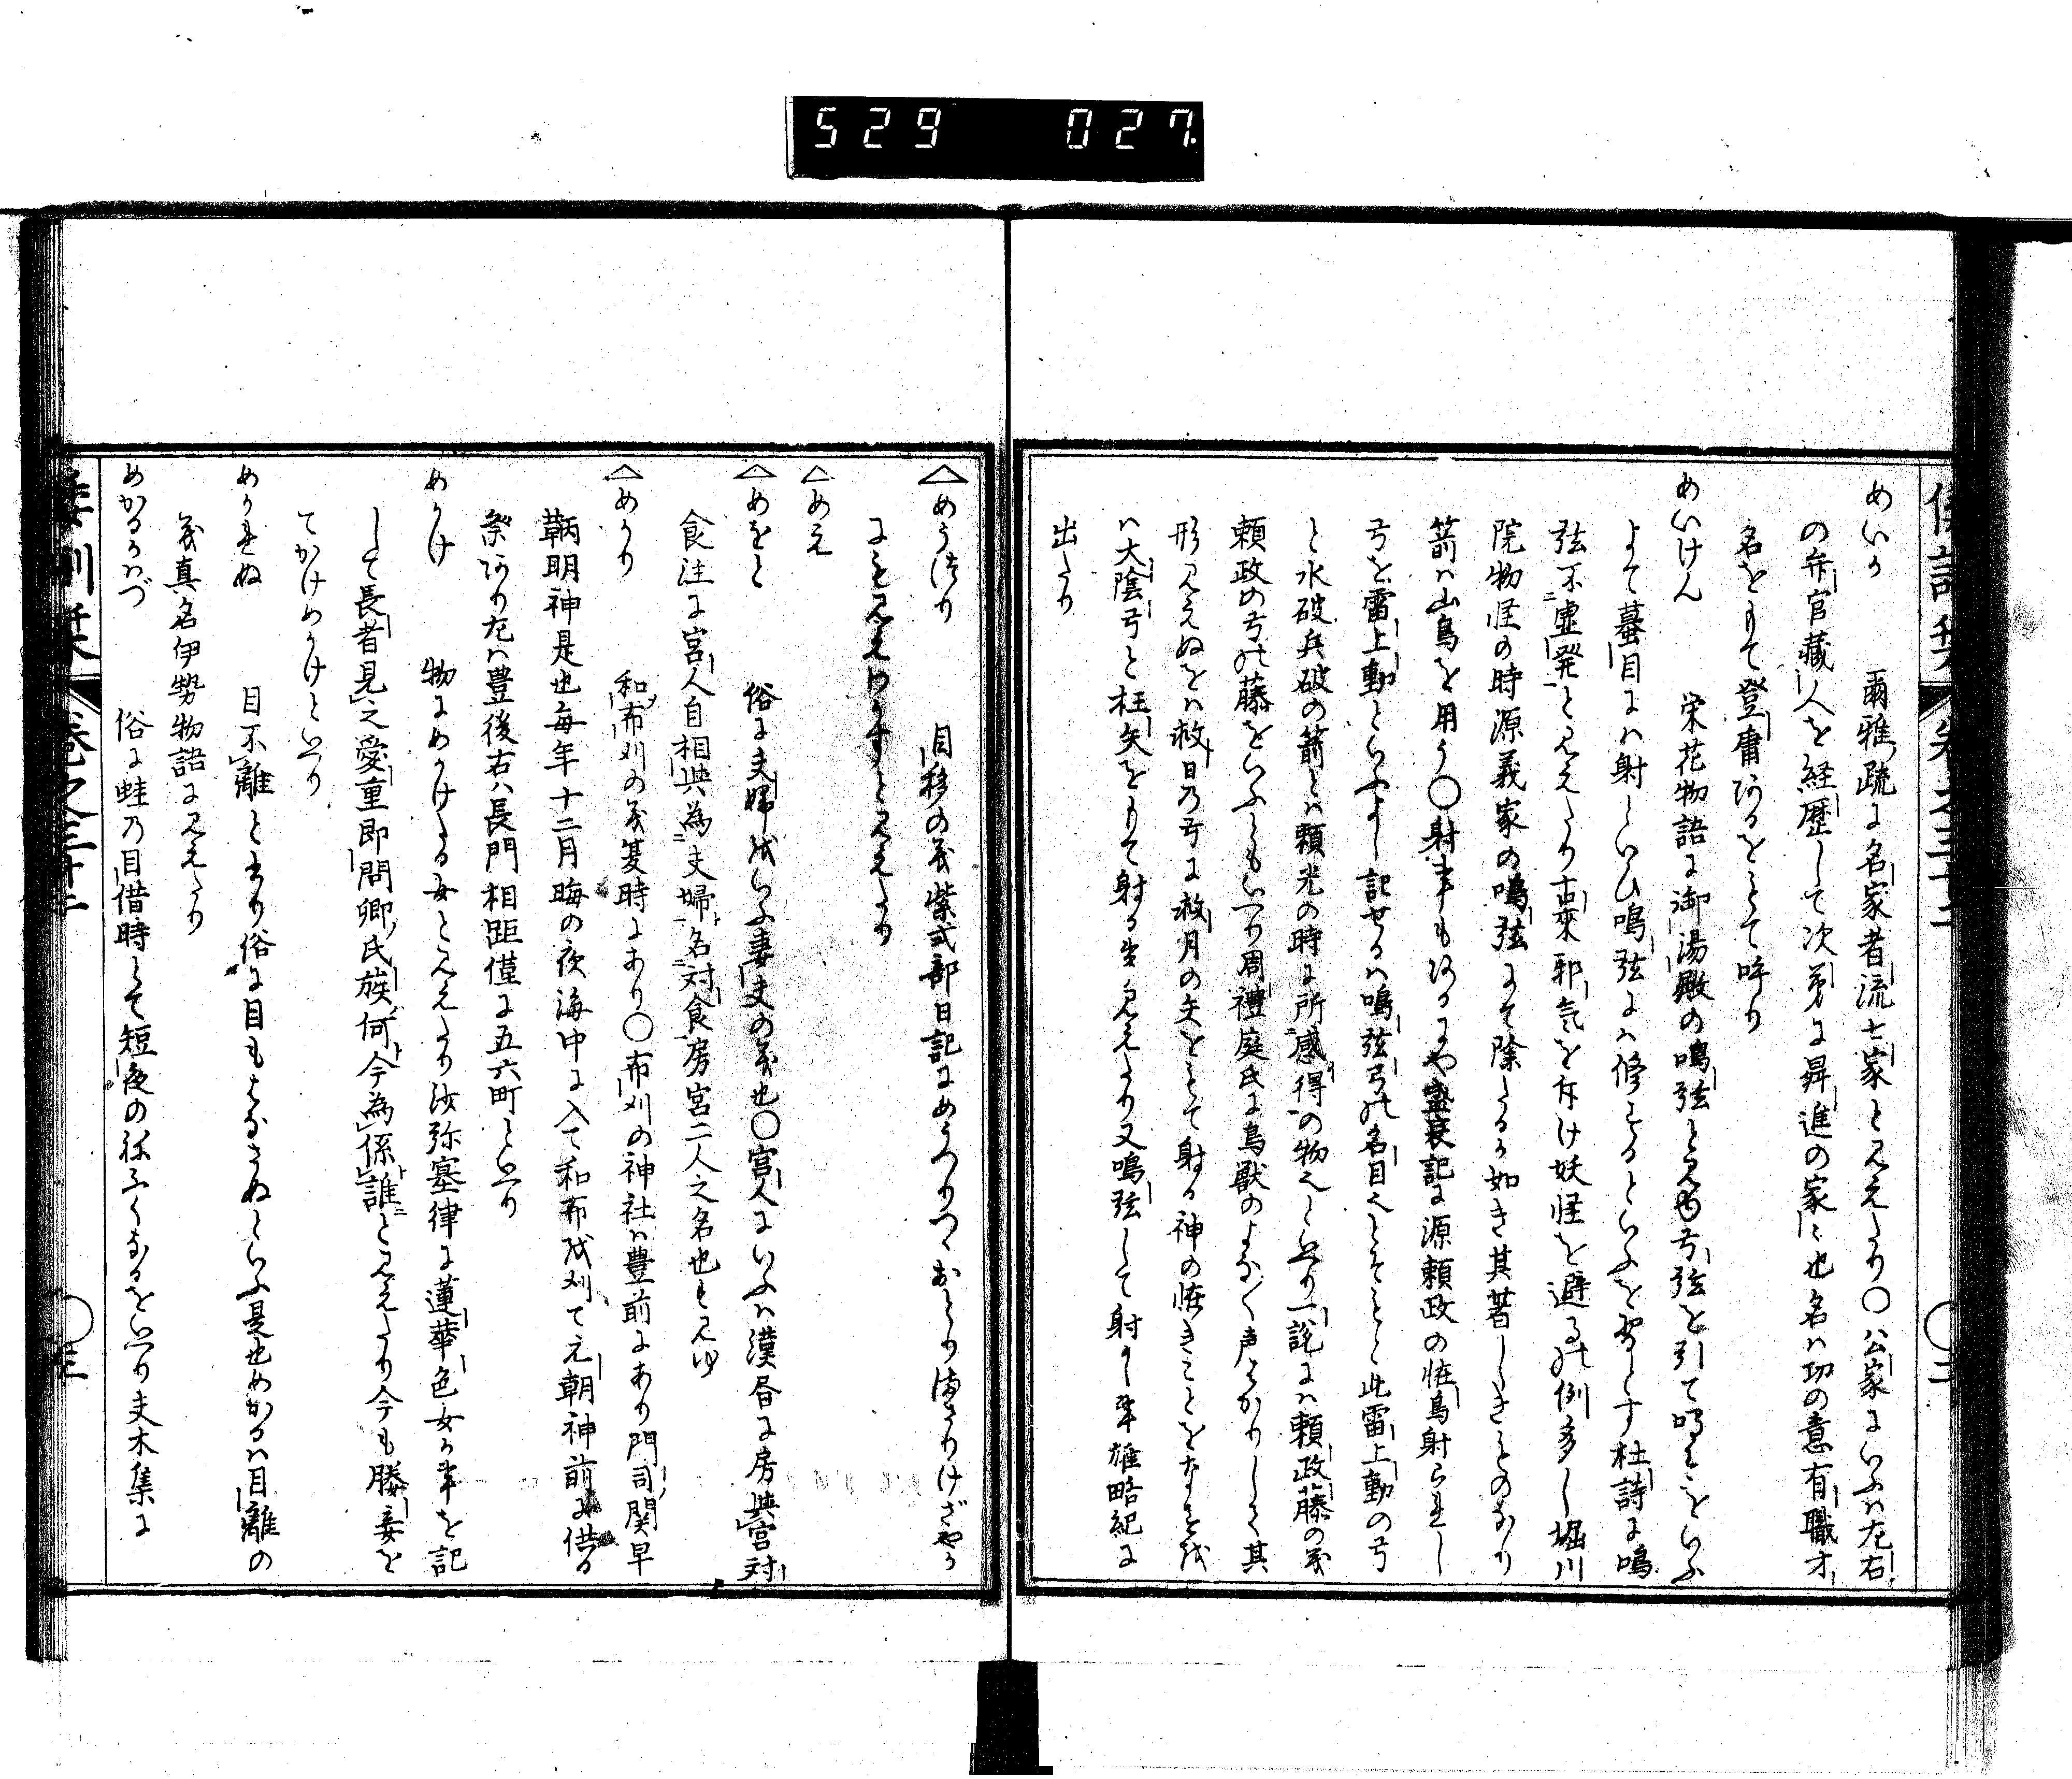 529 027
めいか 爾雅疏に名家者流士家と見えたり○公家にいふハ左右
の弁官藏人を経歴して次第に昇進の家に也名ハ功の意有職才
名をもて登庸あるをもて呼り
めいけん 栄花物語に御湯殿の鳴弦と見ゆ弓弦を引て鳴をいふ
よて蟇目にハ射といひ鳴弦にハ修するといふを習とす杜詩に鳴
弦不虚発と見えたり古来邪気を斥け妖怪を避るの例多し堀川
院物怪の時源義家の鳴弦にて除たるか如き其著しきものなり
箭ハ山鳥を用う○射事もあるにや盛衰記に源頼政の怪鳥射られし
弓を雷上動といふよし記せるハ鳴弦弓の名目也とそもと此雷上動の弓
と水破兵破の箭とハ頼光の時に所感得の物也といへり一説にハ頼政藤の義
頼政の弓の藤をいふともいへり周禮庭氏に鳥獣のよなく声はかりして其
形見えぬをハ救日乃弓に救月の矢をもて射る神の怪きことをなすを
ハ大陰弓と枉矢をもて射る事見えたり又鳴弦して射し事雄略紀に
出たり
△めうつり 目移の義紫式部日記にめうつりつゝおとりまさりけざやか
にも見えわかすと見えたり
△めえ
△めをと 俗に夫婦をいふ妻夫の義也○宮人にいふハ漢書に房與宮対
食注に宮人自相與為夫婦名対食房宮二人之名也と見ゆ
△めかり 和布刈の義夏時にあり○布刈の神社ハ豊前にあり門司関早
鞆明神是也毎年十二月晦の夜海中に入て和布を刈て元朝神前に供る
祭あり左ハ豊後右ハ長門相距僅に五六町といへり
めかけ 物にめかけたる女と見えたり沙弥塞律に蓮華色女か事を記
して長者見之愛重即問卿氏族何今為係誰と見えたり今も媵妾を
てかけめかけといへり
めかれぬ 目不離と書り俗に目もはなさぬといふ是也めかるハ目離の
義真名伊勢物語に見えたり
めかるかハづ 俗に蛙乃目借時とて短夜のねふくなるをいへり夫木集に